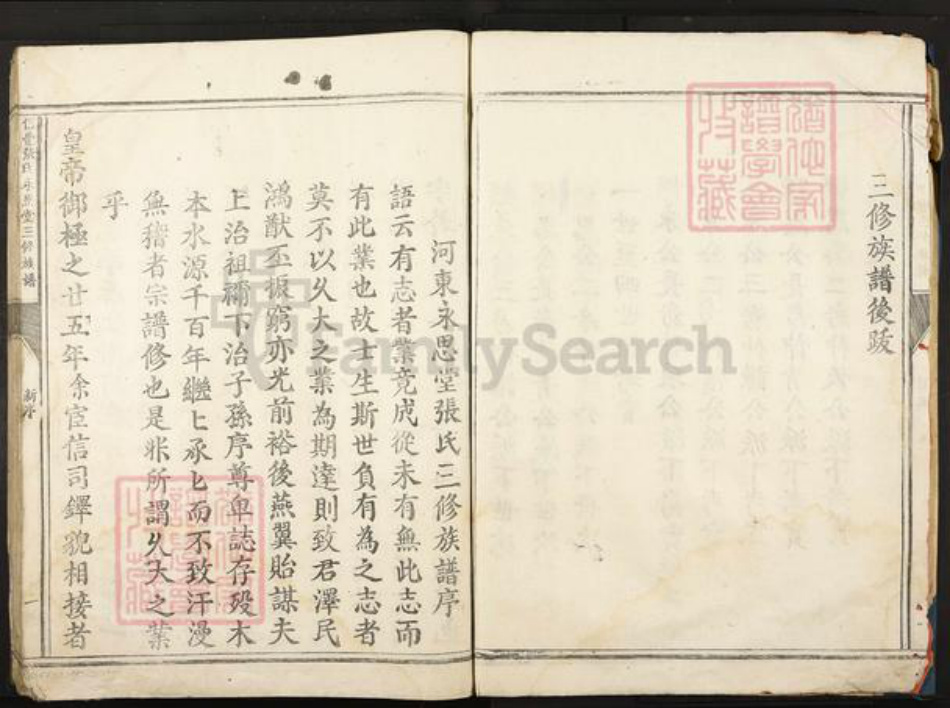 三修族譜後跋
河東永思堂張氏三修族譜序
語云有志者業竟成從未有無此志而
有此業也故士生斯世負有為之志者
莫不以久大之業為期達則致君澤民
鴻猷丕振窮亦光前裕後燕翼貽謀夫
上治祖禰下治子孫序尊卑誌存歿木
本水源千百年繼匕承匕而不致汗漫
無稽者宗譜修也是非所謂久大之業
乎
皇帝御極之廿五年余宦信司鐸貌相接者
張氏永思堂三修族譜
新序
一
譜學會
收藏
譜學會
收藏
FamilySearch